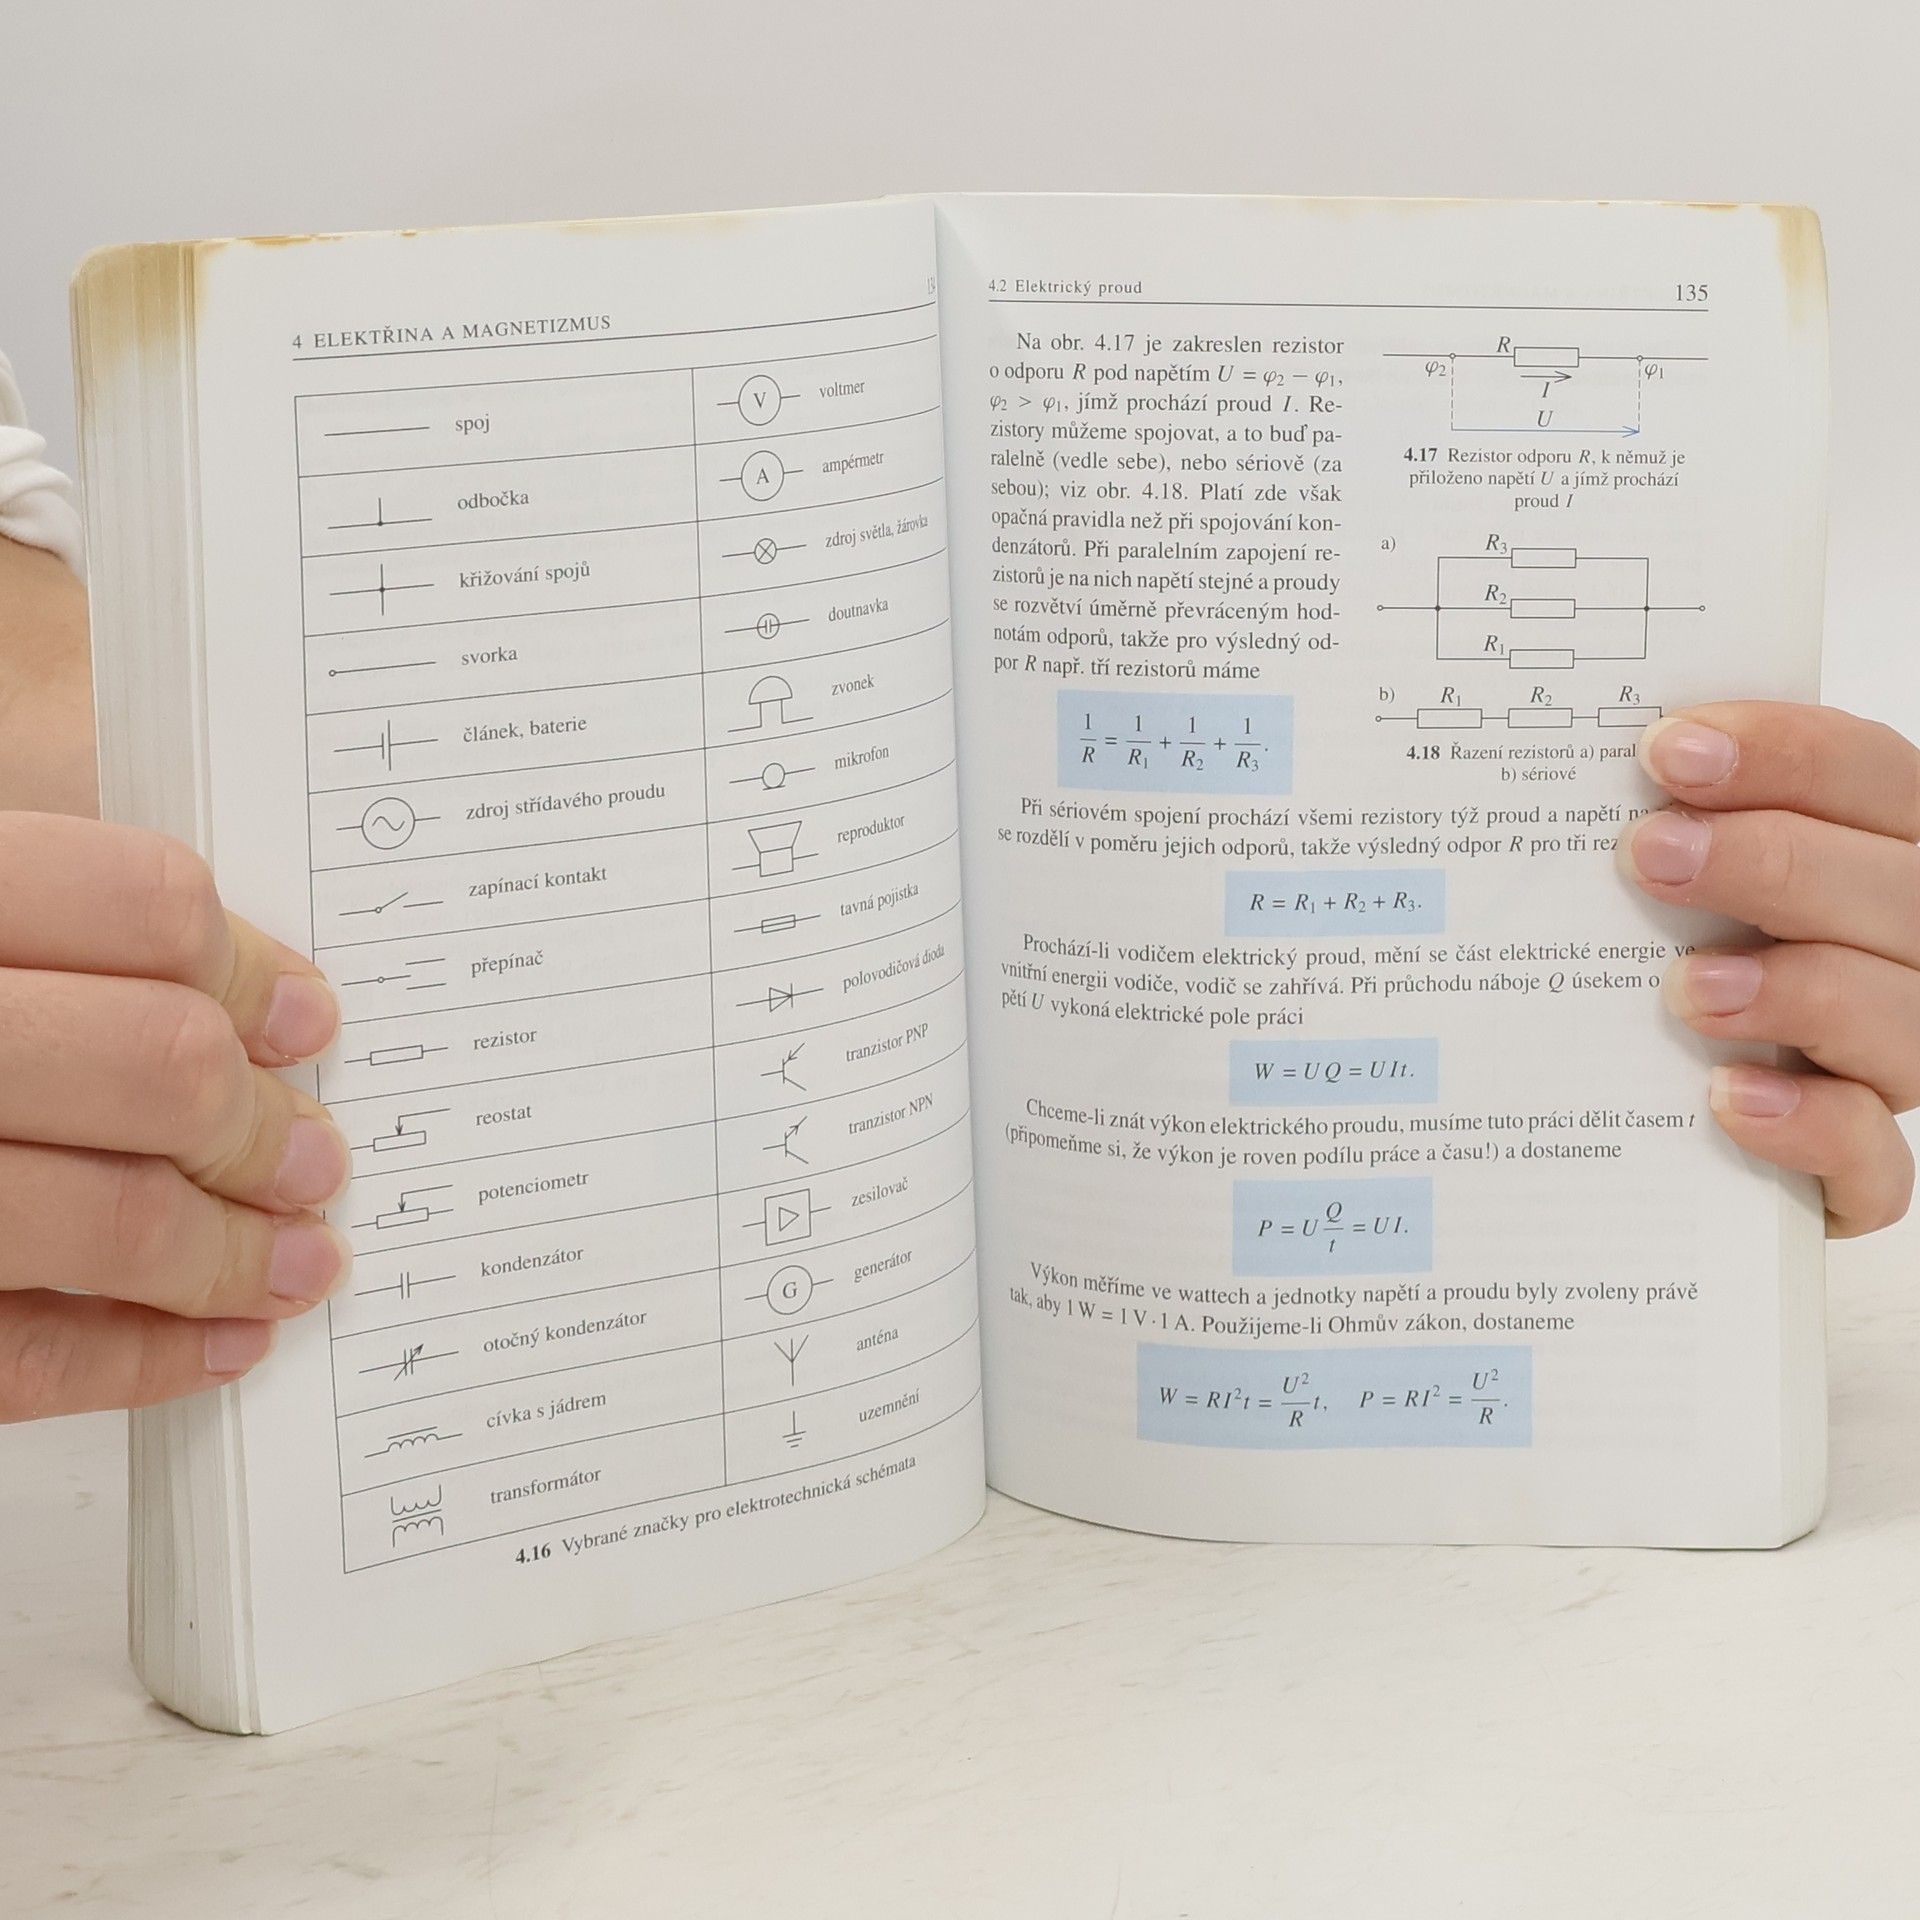 4 ELEKTŘINA A MAGNETIZMUS
134
spoj
odbočka
křižování spojů
svorka
článek, baterie
zdroj střídavého proudu
zapínací kontakt
přepínač
rezistor
reostat
potenciometr
kondenzátor
otočný kondenzátor
cívka s jádrem
transformátor
V voltmer
A ampérmetr
zdroj světla, žárovka
doutnavka
zvonek
mikrofon
reproduktor
tavná pojistka
polovodičová dioda
tranzistor PNP
tranzistor NPN
zesilovač
G generátor
anténa
uzemnění
4.16 Vybrané značky pro elektrotechnická schémata
4.2 Elektrický proud
135
Na obr. 4.17 je zakreslen rezistor
o odporu R pod napětím U = φ₂ − φ₁,
φ₂ > φ₁, jímž prochází proud I. Re-
zistory můžeme spojovat, a to buď pa-
ralelně (vedle sebe), nebo sériově (za
sebou); viz obr. 4.18. Platí zde však
opačná pravidla než při spojování kon-
denzátorů. Při paralelním zapojení re-
zistorů je na nich napětí stejné a proudy
se rozvětví úměrně převráceným hod-
notám odporů, takže pro výsledný od-
por R např. tří rezistorů máme
1/R = 1/R₁ + 1/R₂ + 1/R₃.
R
φ₂ φ₁
I
U
4.17 Rezistor odporu R, k němuž je
přiloženo napětí U a jímž prochází
proud I
a) R₃
R₂
R₁
b) R₁ R₂ R₃
4.18 Řazení rezistorů a) paral
b) sériové
Při sériovém spojení prochází všemi rezistory týž proud a napětí
se rozdělí v poměru jejich odporů, takže výsledný odpor R pro tři rez
R = R₁ + R₂ + R₃.
Prochází-li vodičem elektrický proud, mění se část elektrické energie ve
vnitřní energii vodiče, vodič se zahřívá. Při průchodu náboje Q úsekem o
pětí U vykoná elektrické pole práci
W = UQ = UIt.
Chceme-li znát výkon elektrického proudu, musíme tuto práci dělit časem t
(připomeňme si, že výkon je roven podílu práce a času!) a dostaneme
P = U Q/t = UI.
Výkon měříme ve wattech a jednotky napětí a proudu byly zvoleny právě
tak, aby 1 W = 1 V · 1 A. Použijeme-li Ohmův zákon, dostaneme
W = RI²t = U²/R t, P = RI² = U²/R.